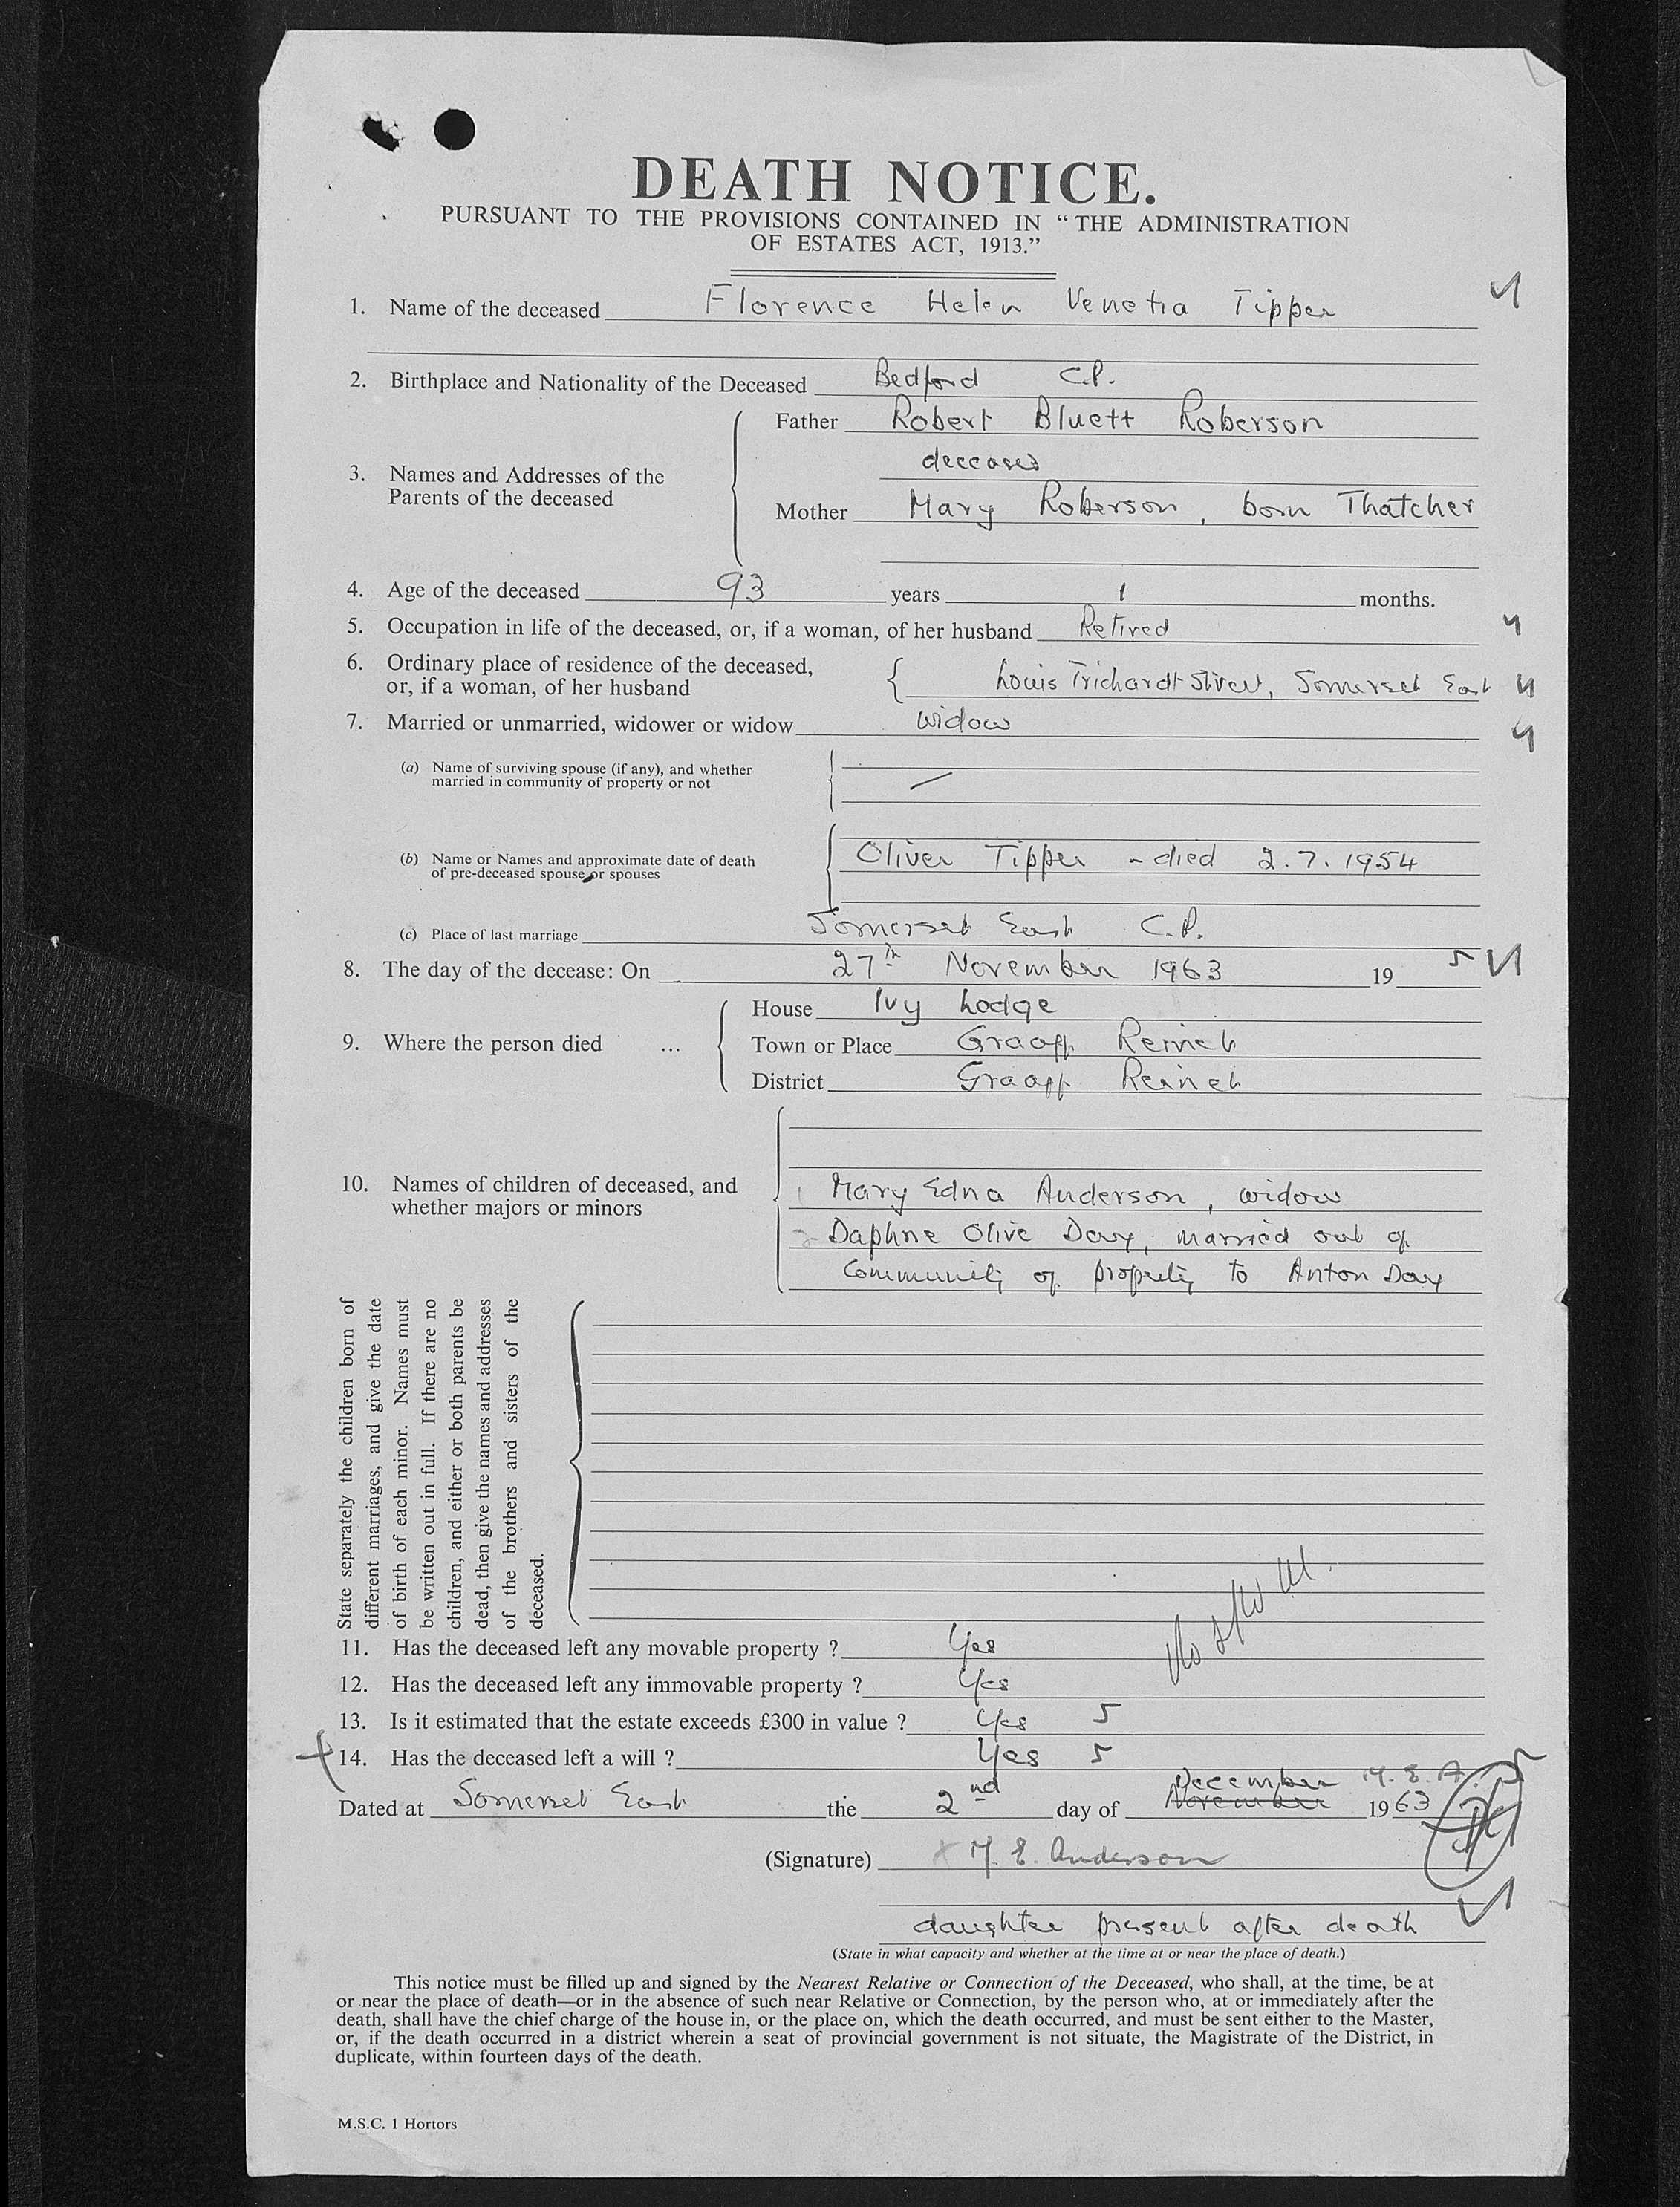 DEATH NOTICE.
PURSUANT TO THE PROVISIONS CONTAINED IN “THE ADMINISTRATION
OF ESTATES ACT, 1913.”
1. Name of the deceased Florence Helen Venetia Tipper
2. Birthplace and Nationality of the Deceased Bedford C.P.
3. Names and Addresses of the
Parents of the deceased
Father Robert Bluett Roberson
deceased
Mother Mary Roberson, born Thatcher
4. Age of the deceased 93 years 1 months.
5. Occupation in life of the deceased, or, if a woman, of her husband Retired
6. Ordinary place of residence of the deceased,
or, if a woman, of her husband
Louis Trichardt Street, Somerset East
7. Married or unmarried, widower or widow widow
(a) Name of surviving spouse (if any), and whether
married in community of property or not
(b) Name or Names and approximate date of death
of pre-deceased spouse or spouses
Oliver Tipper - died 2.7.1954
(c) Place of last marriage Somerset East C.P.
8. The day of the decease: On 27th November 1963 19 5
9. Where the person died ...
House Ivy Lodge
Town or Place Graaff Reinet
District Graaff Reinet
10. Names of children of deceased, and
whether majors or minors
1 Mary Edna Anderson, widow
2 Daphne Olive Day, married out of
community of property to Anton Day
State separately the children born of
different marriages, and give the date
of birth of each minor. Names must
be written out in full. If there are no
children, and either or both parents be
dead, then give the names and addresses
of the brothers and sisters of the
deceased.
11. Has the deceased left any movable property ? Yes
12. Has the deceased left any immovable property ? Yes
13. Is it estimated that the estate exceeds £300 in value ? Yes 5
14. Has the deceased left a will ? Yes 5
December M.E.A.
Dated at Somerset East the 2nd day of November 1963
(Signature) x M. E. Anderson
daughter present after death
(State in what capacity and whether at the time at or near the place of death.)
This notice must be filled up and signed by the Nearest Relative or Connection of the Deceased, who shall, at the time, be at
or near the place of death—or in the absence of such near Relative or Connection, by the person who, at or immediately after the
death, shall have the chief charge of the house in, or the place on, which the death occurred, and must be sent either to the Master,
or, if the death occurred in a district wherein a seat of provincial government is not situate, the Magistrate of the District, in
duplicate, within fourteen days of the death.
M.S.C. 1 Hortors